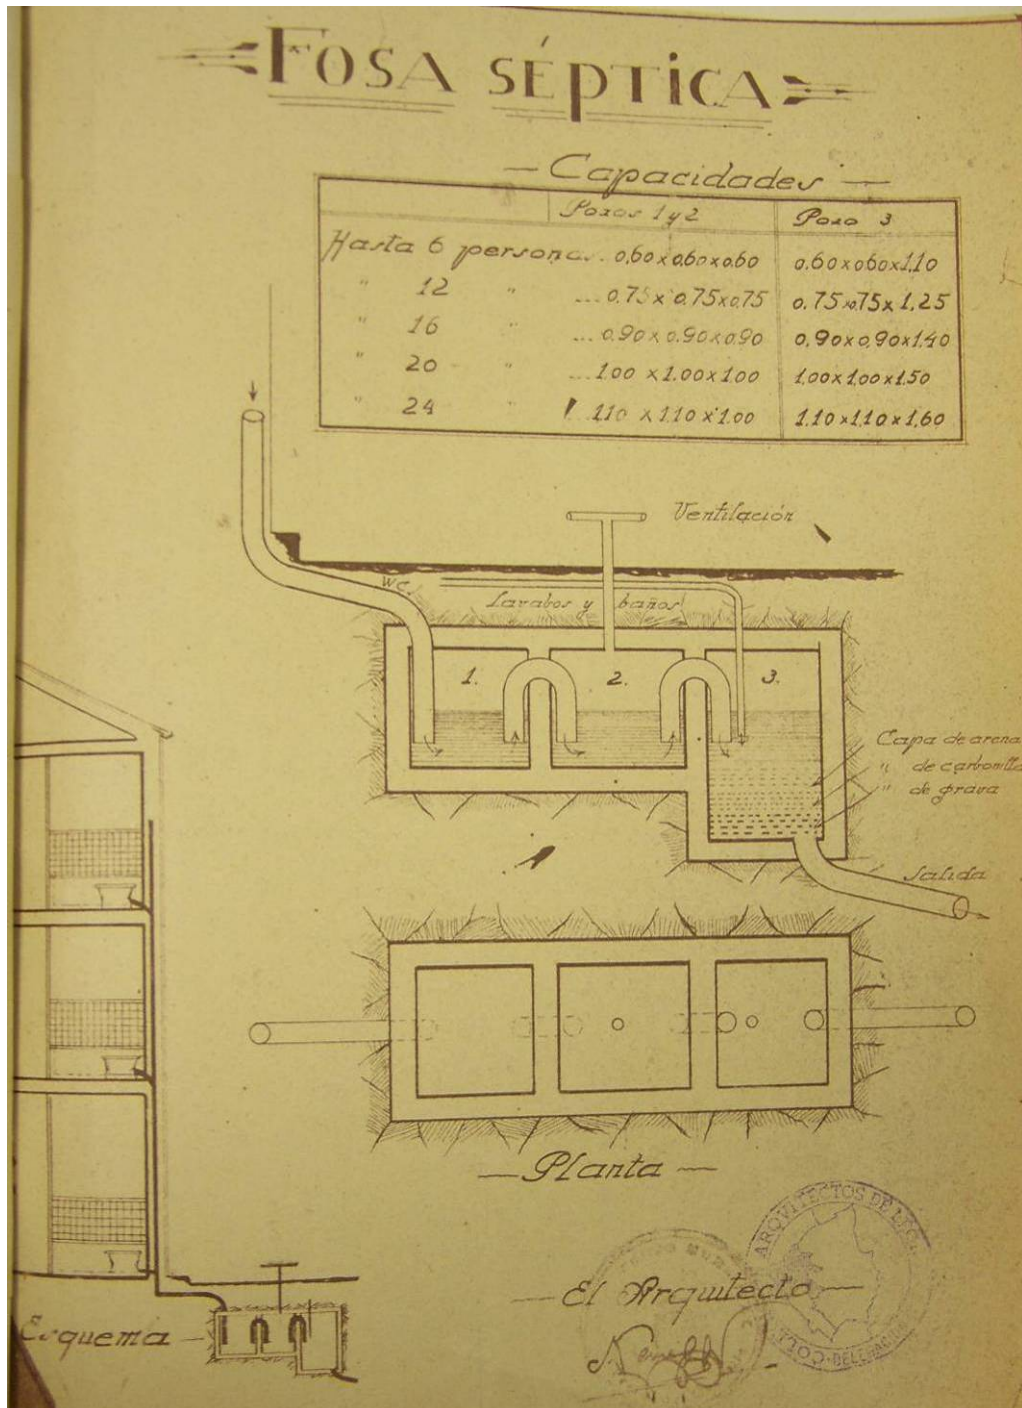 FOSA SÉPTICA
— Capacidades —
Pozos 1 y 2 Pozo 3
Hasta 6 personas.. 0,60 x 0,60 x 0,60 0,60 x 0,60 x 1,10
" 12 " ... 0,75 x 0,75 x 0,75 0,75 x 0,75 x 1,25
" 16 " ... 0,90 x 0,90 x 0,90 0,90 x 0,90 x 1,40
" 20 " ... 1,00 x 1,00 x 1,00 1,00 x 1,00 x 1,50
" 24 " 1,10 x 1,10 x 1,00 1,10 x 1,10 x 1,60
Ventilación
WC.
Lavabos y baños
1. 2. 3.
Capa de arena
" de carbonilla
" de grava
Salida
— Planta —
ARQVITECTOS DE
— El Arquitecto —
Esquema —